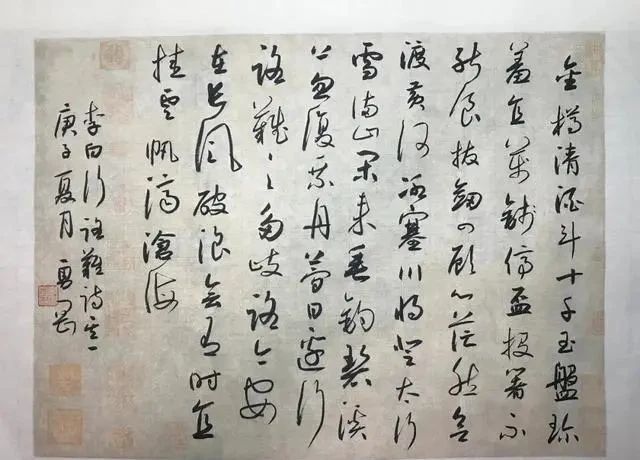 金樽清酒斗十千玉盤珍
羞直萬錢停盃投箸不
能食拔劍四顧心茫然欲
渡黃河冰塞川將登太行
雪滿山閑來垂釣碧溪
上忽復乘舟夢日邊行
路難〻多歧路今安
在長風破浪會有時直
挂雲帆濟滄海
李白行路難詩其一
庚子夏月 勇